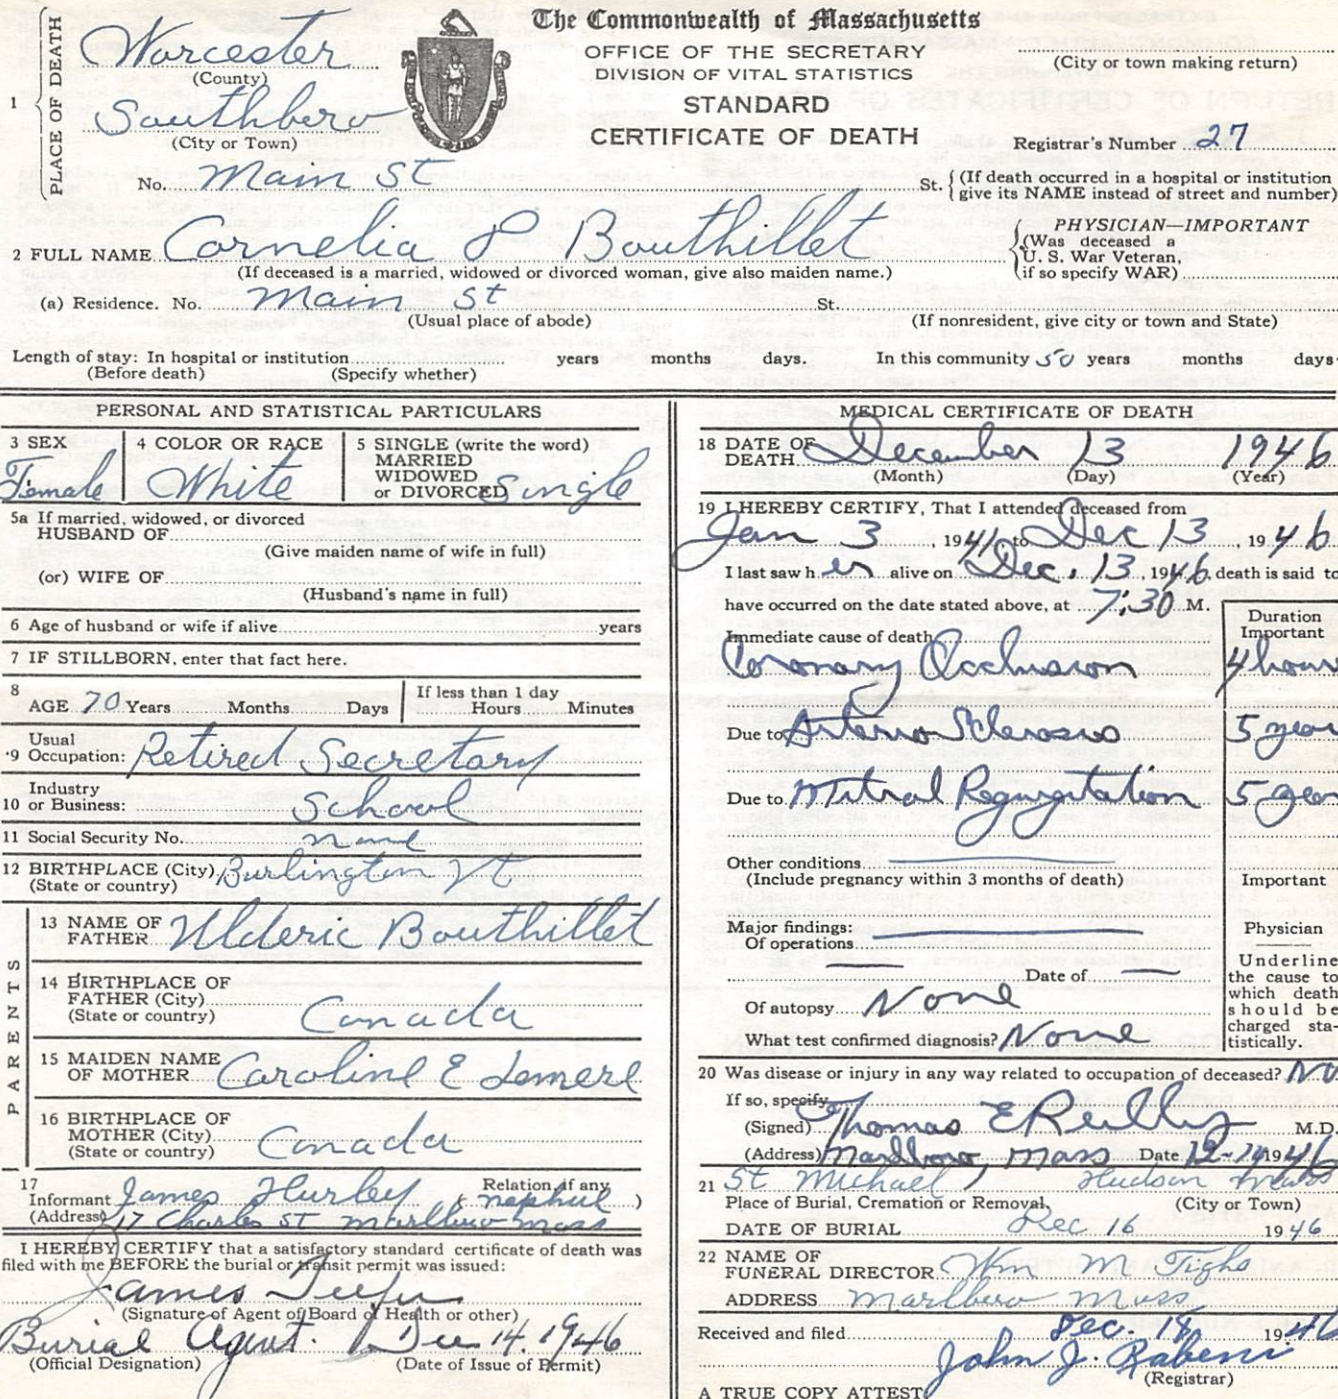 The Commonwealth of Massachusetts
OFFICE OF THE SECRETARY
DIVISION OF VITAL STATISTICS
STANDARD
CERTIFICATE OF DEATH
1 PLACE OF DEATH
Worcester
(County)
Southboro
(City or Town)
No. Main St St. (If death occurred in a hospital or institution give its NAME instead of street and number)
(City or town making return)
Registrar's Number 27
2 FULL NAME Cornelia P Bouthillet
(If deceased is a married, widowed or divorced woman, give also maiden name.)
PHYSICIAN—IMPORTANT
(Was deceased a
U. S. War Veteran,
if so specify WAR)
(a) Residence. No. Main St St.
(Usual place of abode) (If nonresident, give city or town and State)
Length of stay: In hospital or institution years months days. In this community 50 years months days.
(Before death) (Specify whether)
PERSONAL AND STATISTICAL PARTICULARS
3 SEX
Female
4 COLOR OR RACE
White
5 SINGLE (write the word)
MARRIED
WIDOWED
or DIVORCED Single
5a If married, widowed, or divorced
HUSBAND OF
(Give maiden name of wife in full)
(or) WIFE OF
(Husband's name in full)
6 Age of husband or wife if alive years
7 IF STILLBORN, enter that fact here.
8
AGE 70 Years Months Days
If less than 1 day
Hours Minutes
9 Usual
Occupation: Retired Secretary
10 Industry
or Business: School
11 Social Security No. None
12 BIRTHPLACE (City) Burlington Vt
(State or country)
PARENTS
13 NAME OF
FATHER Ulderic Bouthillet
14 BIRTHPLACE OF
FATHER (City)
(State or country) Canada
15 MAIDEN NAME
OF MOTHER Caroline E Lemere
16 BIRTHPLACE OF
MOTHER (City) Canada
(State or country)
17
Informant James Hurley Relation, if any
(nephew)
(Address) 17 Charles St Marlboro Mass
I HEREBY CERTIFY that a satisfactory standard certificate of death was
filed with me BEFORE the burial or transit permit was issued:
James
(Signature of Agent of Board of Health or other)
Burial Agent. Dec 14. 1946
(Official Designation) (Date of Issue of Permit)
MEDICAL CERTIFICATE OF DEATH
18 DATE OF
DEATH December 13 1946
(Month) (Day) (Year)
19 I HEREBY CERTIFY, That I attended deceased from
Jan 3, 1941, to Dec 13, 1946
I last saw h er alive on Dec. 13, 1946, death is said to
have occurred on the date stated above, at 7:30 M.
Duration
Important
Immediate cause of death
Coronary Occlusion 4 hours
Due to Arterio Sclerosis 5 years
Due to Mitral Regurgitation 5 years
Other conditions
(Include pregnancy within 3 months of death)
Important
Major findings:
Of operations
Date of
Of autopsy None
What test confirmed diagnosis? None
Physician
Underline
the cause to
which death
should be
charged sta-
tistically.
20 Was disease or injury in any way related to occupation of deceased? No
If so, specify
(Signed) Thomas E Reilly M.D.
(Address) Marlboro, Mass Date 12-14 1946
21 St Michael, Hudson Mass
Place of Burial, Cremation or Removal, (City or Town)
DATE OF BURIAL Dec 16 1946
22 NAME OF
FUNERAL DIRECTOR Wm M Tighe
ADDRESS Marlboro Mass
Received and filed Dec. 18 1946
John J.
(Registrar)
A TRUE COPY ATTEST